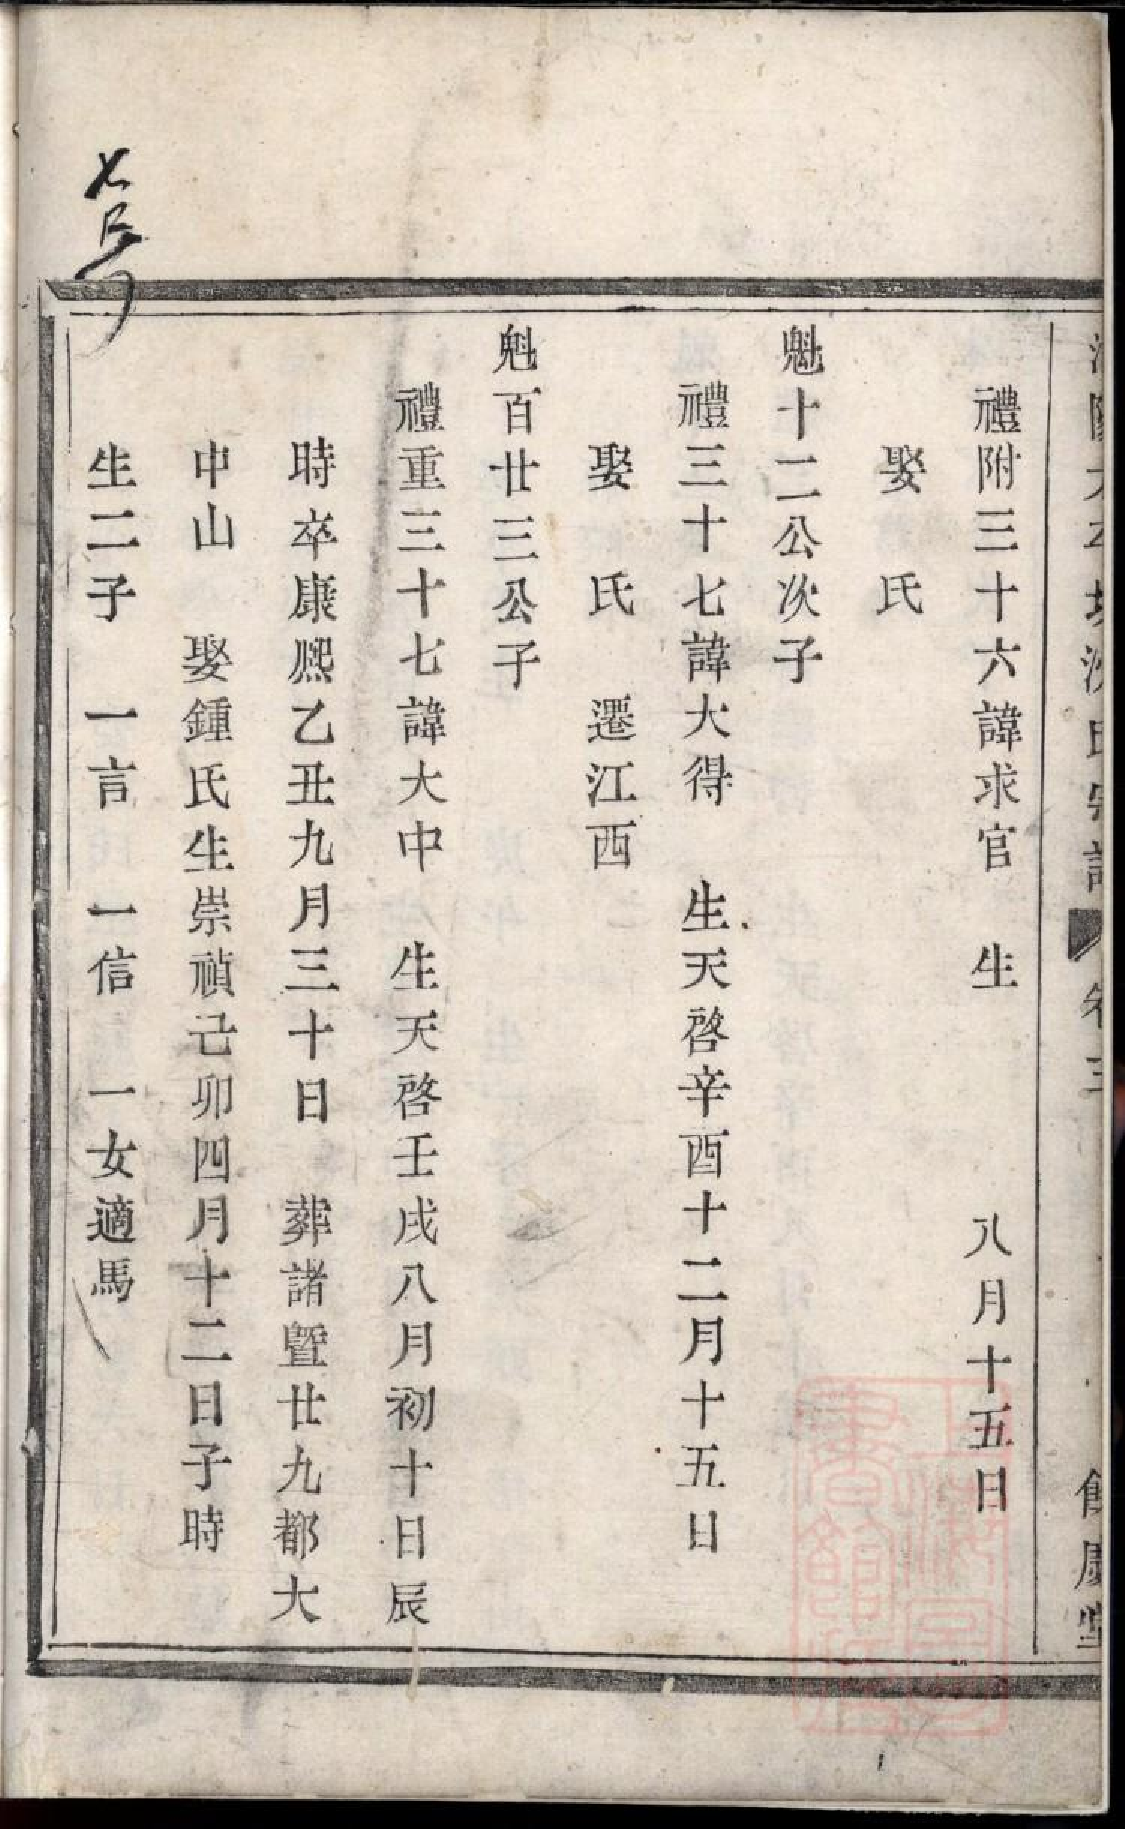 卷三
禮附三十六諱求官　生　八月十五日
娶　氏
魁十二公次子
禮三十七諱大得　生天啓辛酉十二月十五日
娶　氏　遷江西
魁百廿三公子
禮重三十七諱大中　生天啓壬戌八月初十日辰
時卒康熙乙丑九月三十日　葬諸暨廿九都大
中山　娶鍾氏生崇禎己卯四月十二日子時
生二子　一言　一信　一女適馬